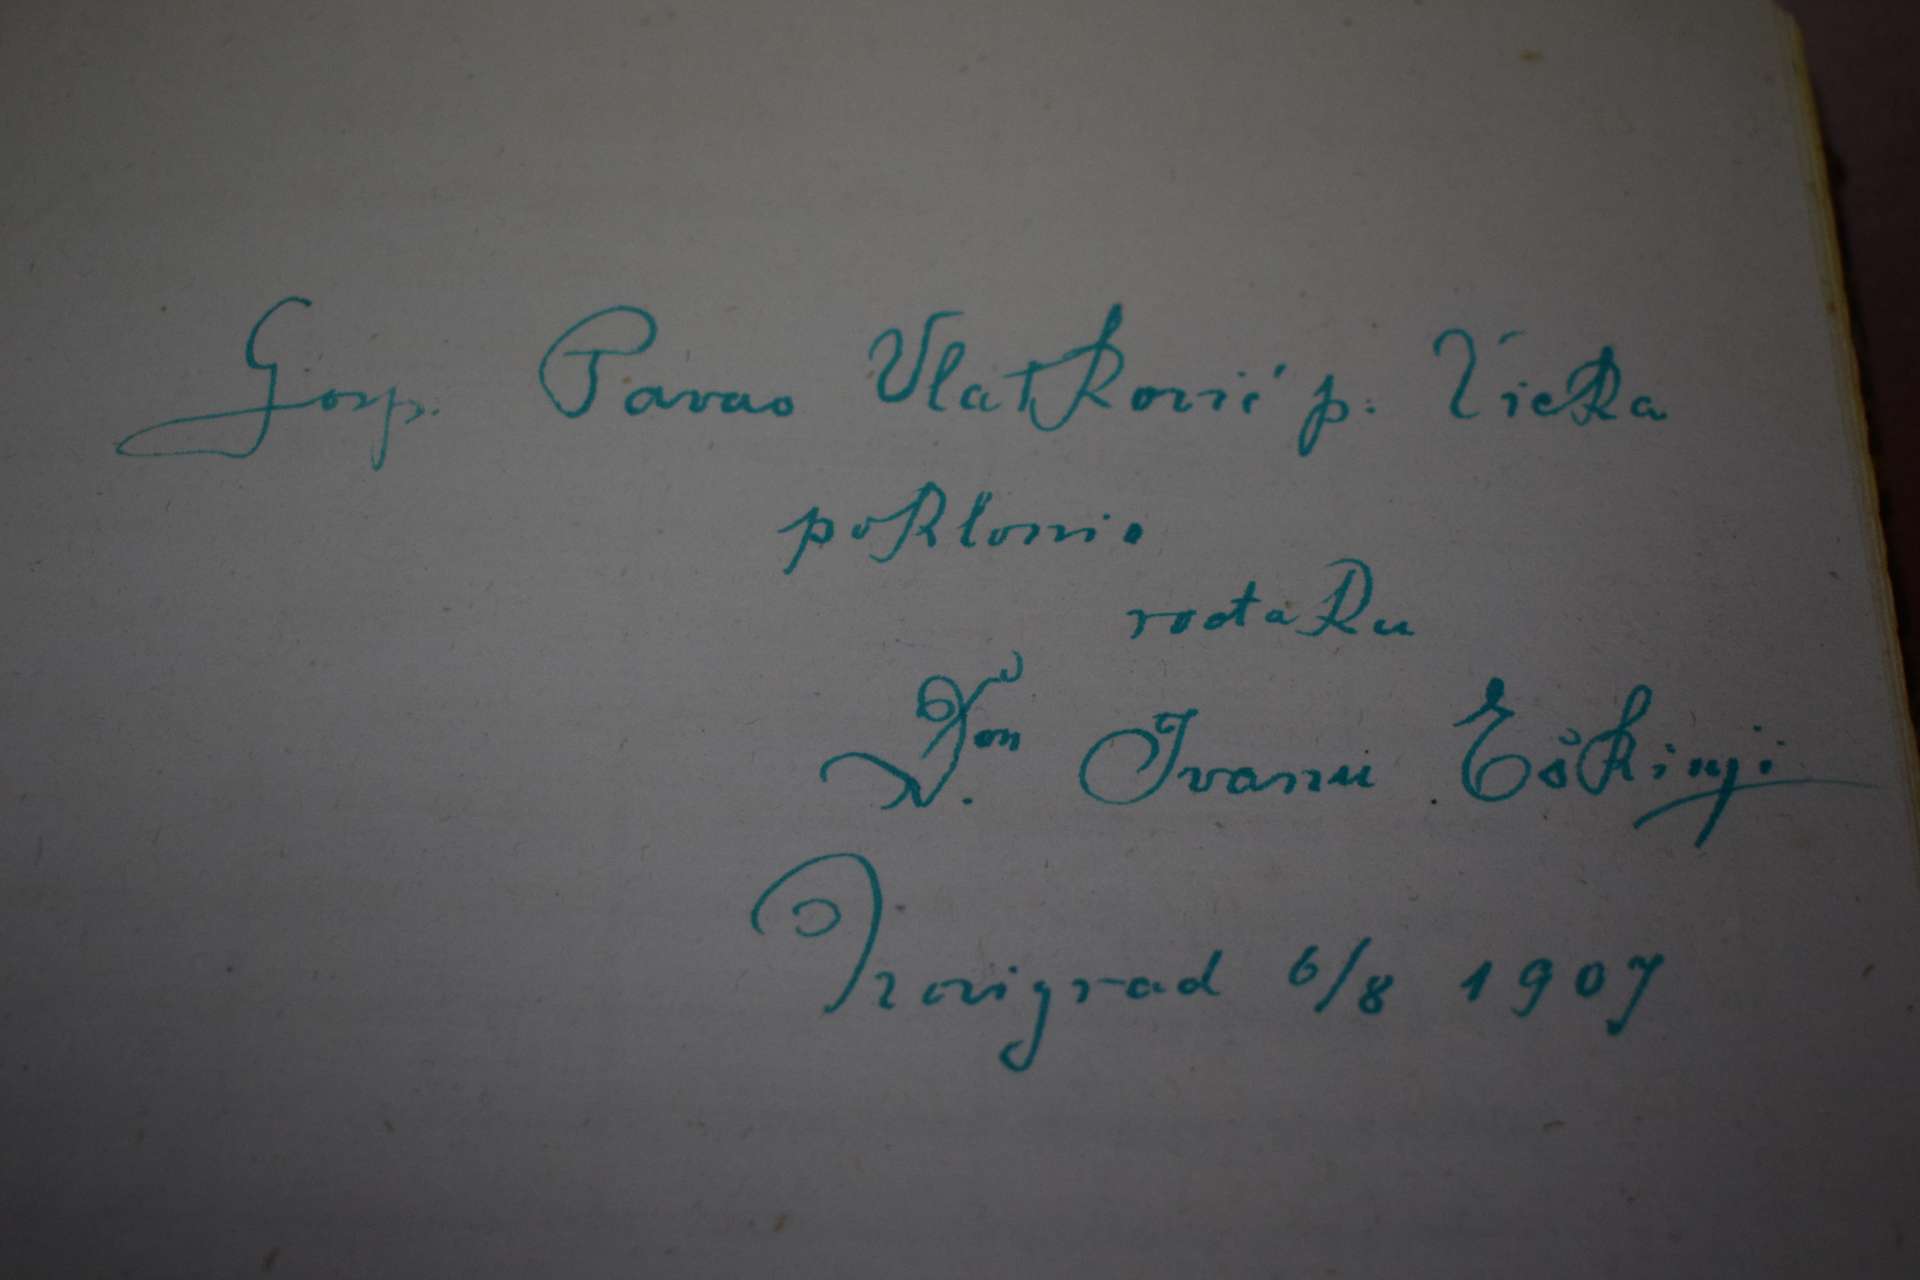 Gosp. Pavao Vlatković p. Vicka
poklonio
rođaku
Don Ivanu Eškinji
Novigrad 6/8 1907